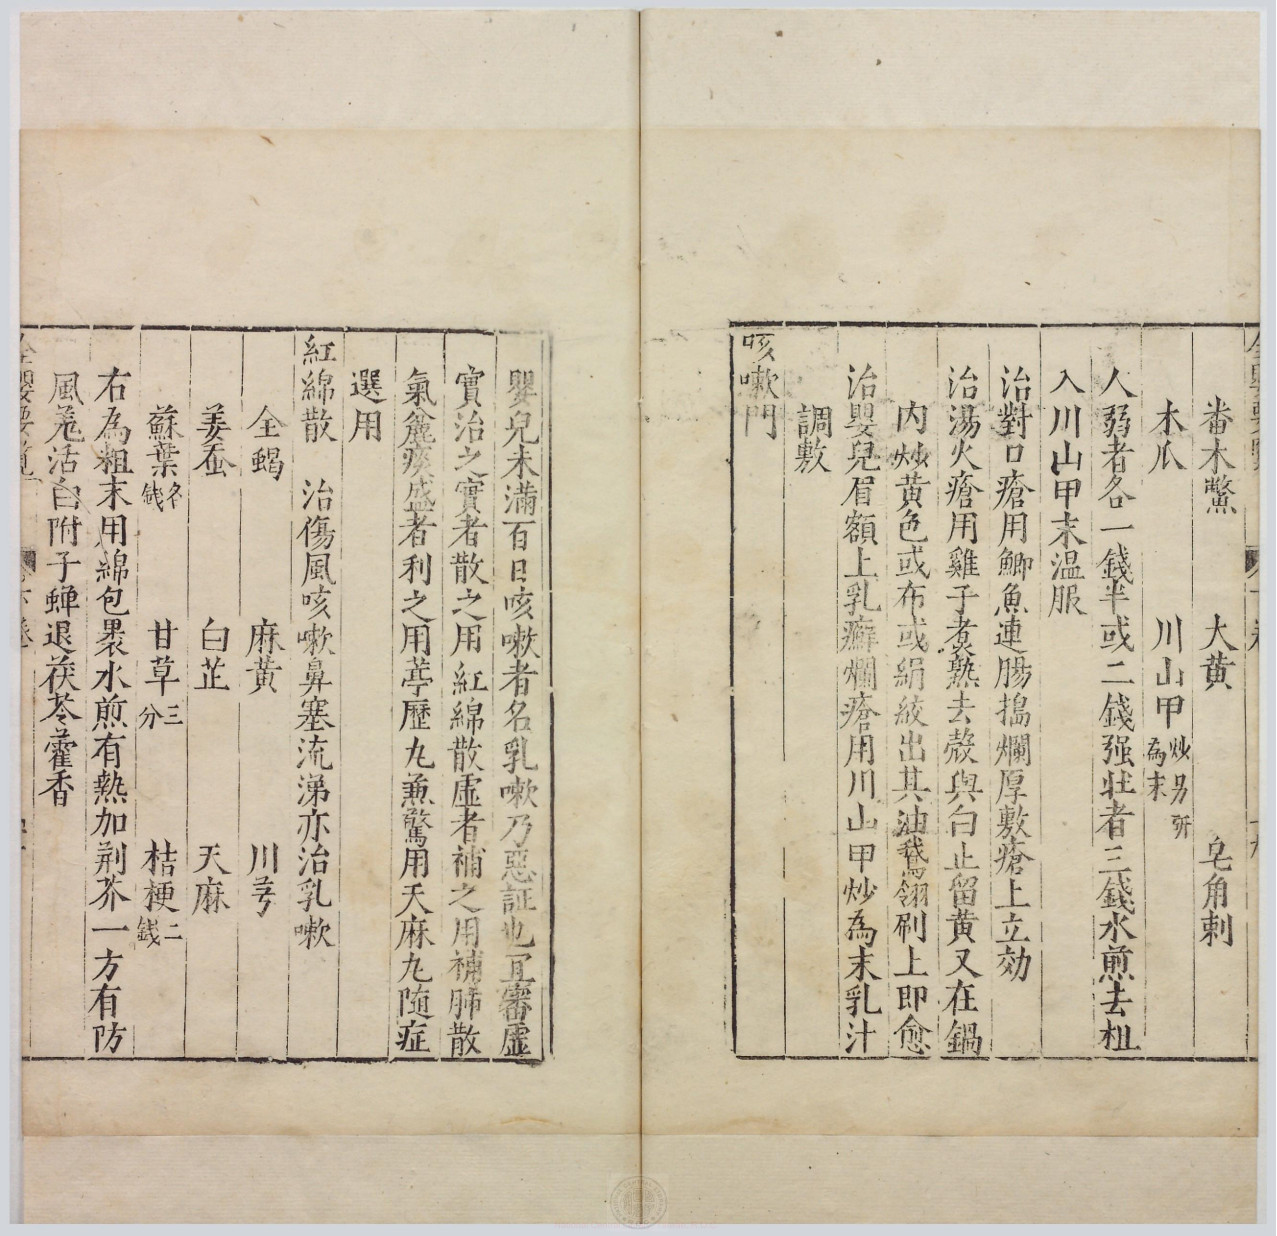 番木鱉　大黄　皂角刺
木瓜　川山甲炒另研為末
人弱者各一錢半或二錢强壯者三錢水煎去柤
入川山甲末温服
治對口瘡用鯽魚連腸搗爛厚敷瘡上立効
治湯火瘡用雞子煮熟去殻與白止留黄又在鍋
内炒黄色或布或絹絞出其油鵞翎刷上即愈
治嬰兒眉額上乳癬爛瘡用川山甲炒為末乳汁
調敷
咳嗽門
嬰兒未滿百日咳嗽者名乳嗽乃惡証也宜審虛
實治之實者散之用紅綿散虛者補之用補肺散
氣麄痰盛者利之用葶歷九兼驚用天麻九随症
選用
紅綿散　治傷風咳嗽鼻塞流涕亦治乳嗽
全蝎　麻黄　川芎
姜蚕　白芷　天麻
蘇葉各錢　甘草三分　桔梗二錢
右為粗末用綿包褁水煎有熱加荆芥一方有防
風羗活白附子蟬退茯苓藿香